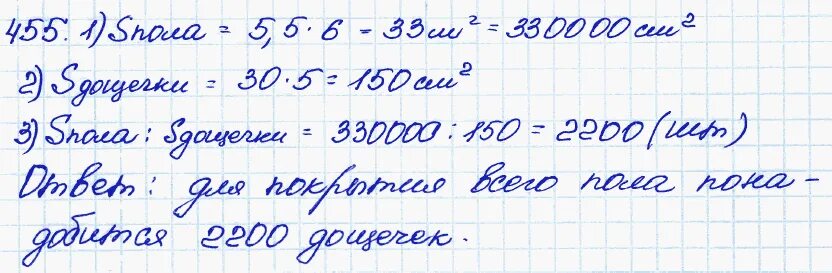 455. 1) Sпола = 5,5·6 = 33м² = 330000см²
2) Sдощечки = 30·5 = 150см²
3) Sпола : Sдощечки = 330000 : 150 = 2200 (шт)
Ответ: для покрытия всего пола пона-
добится 2200 дощечек.